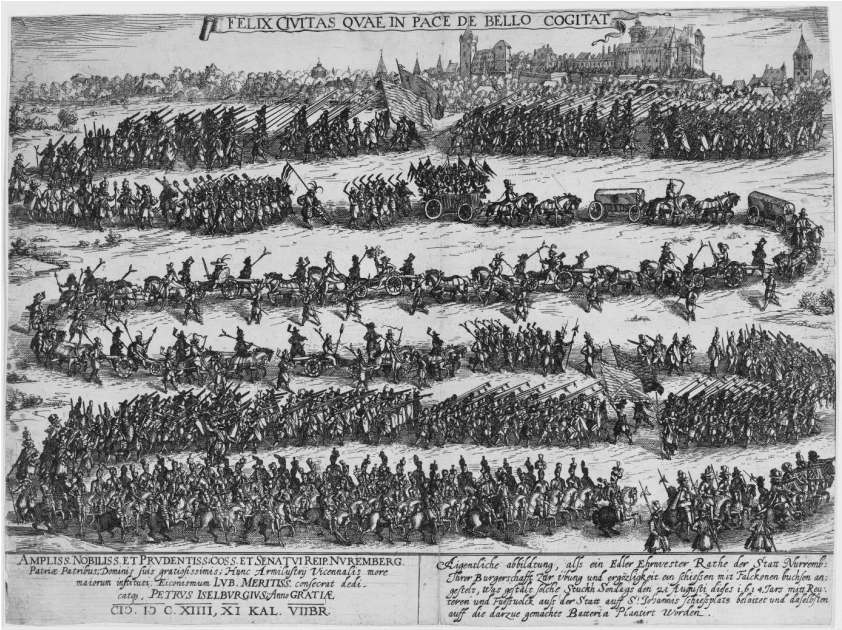 FELIX CIVITAS QVAE IN PACE DE BELLO COGITAT
AMPLISS. NOBILISS. ET PRVDENTISS. COSS. ET SENATVI REIP. NVREMBERG.
Patriæ Patribus: Dominis suis gratiosissimis: Hunc Armilustrij Vicennalis more
maiorum instituti, Eiconismum LVB. MERITISS. consecrat dedi
catq₃, PETRVS ISELBVRGIVS, Anno GRATIÆ
CIↃ. IↃ C. XIIII, XI KAL. VIIBR.
Aigentliche abbildung, alss ein Edler Ehrnvester Rathe der Statt Nurremb:
Ihrer Burgerschafft Zur übung und ergözligkeit ein schiessen mit Falckonen buchsen an=
gestelt, Was gstalt solche Stuckh Sondags den 21 Augusti dises 1614 Jars mitt Reu=
teren und Fuesvolck auss der Statt auff St. Johannis schiessplatz belaitet und daselbsten
auff die darzue gemachte Batteria Plantirt Worden.